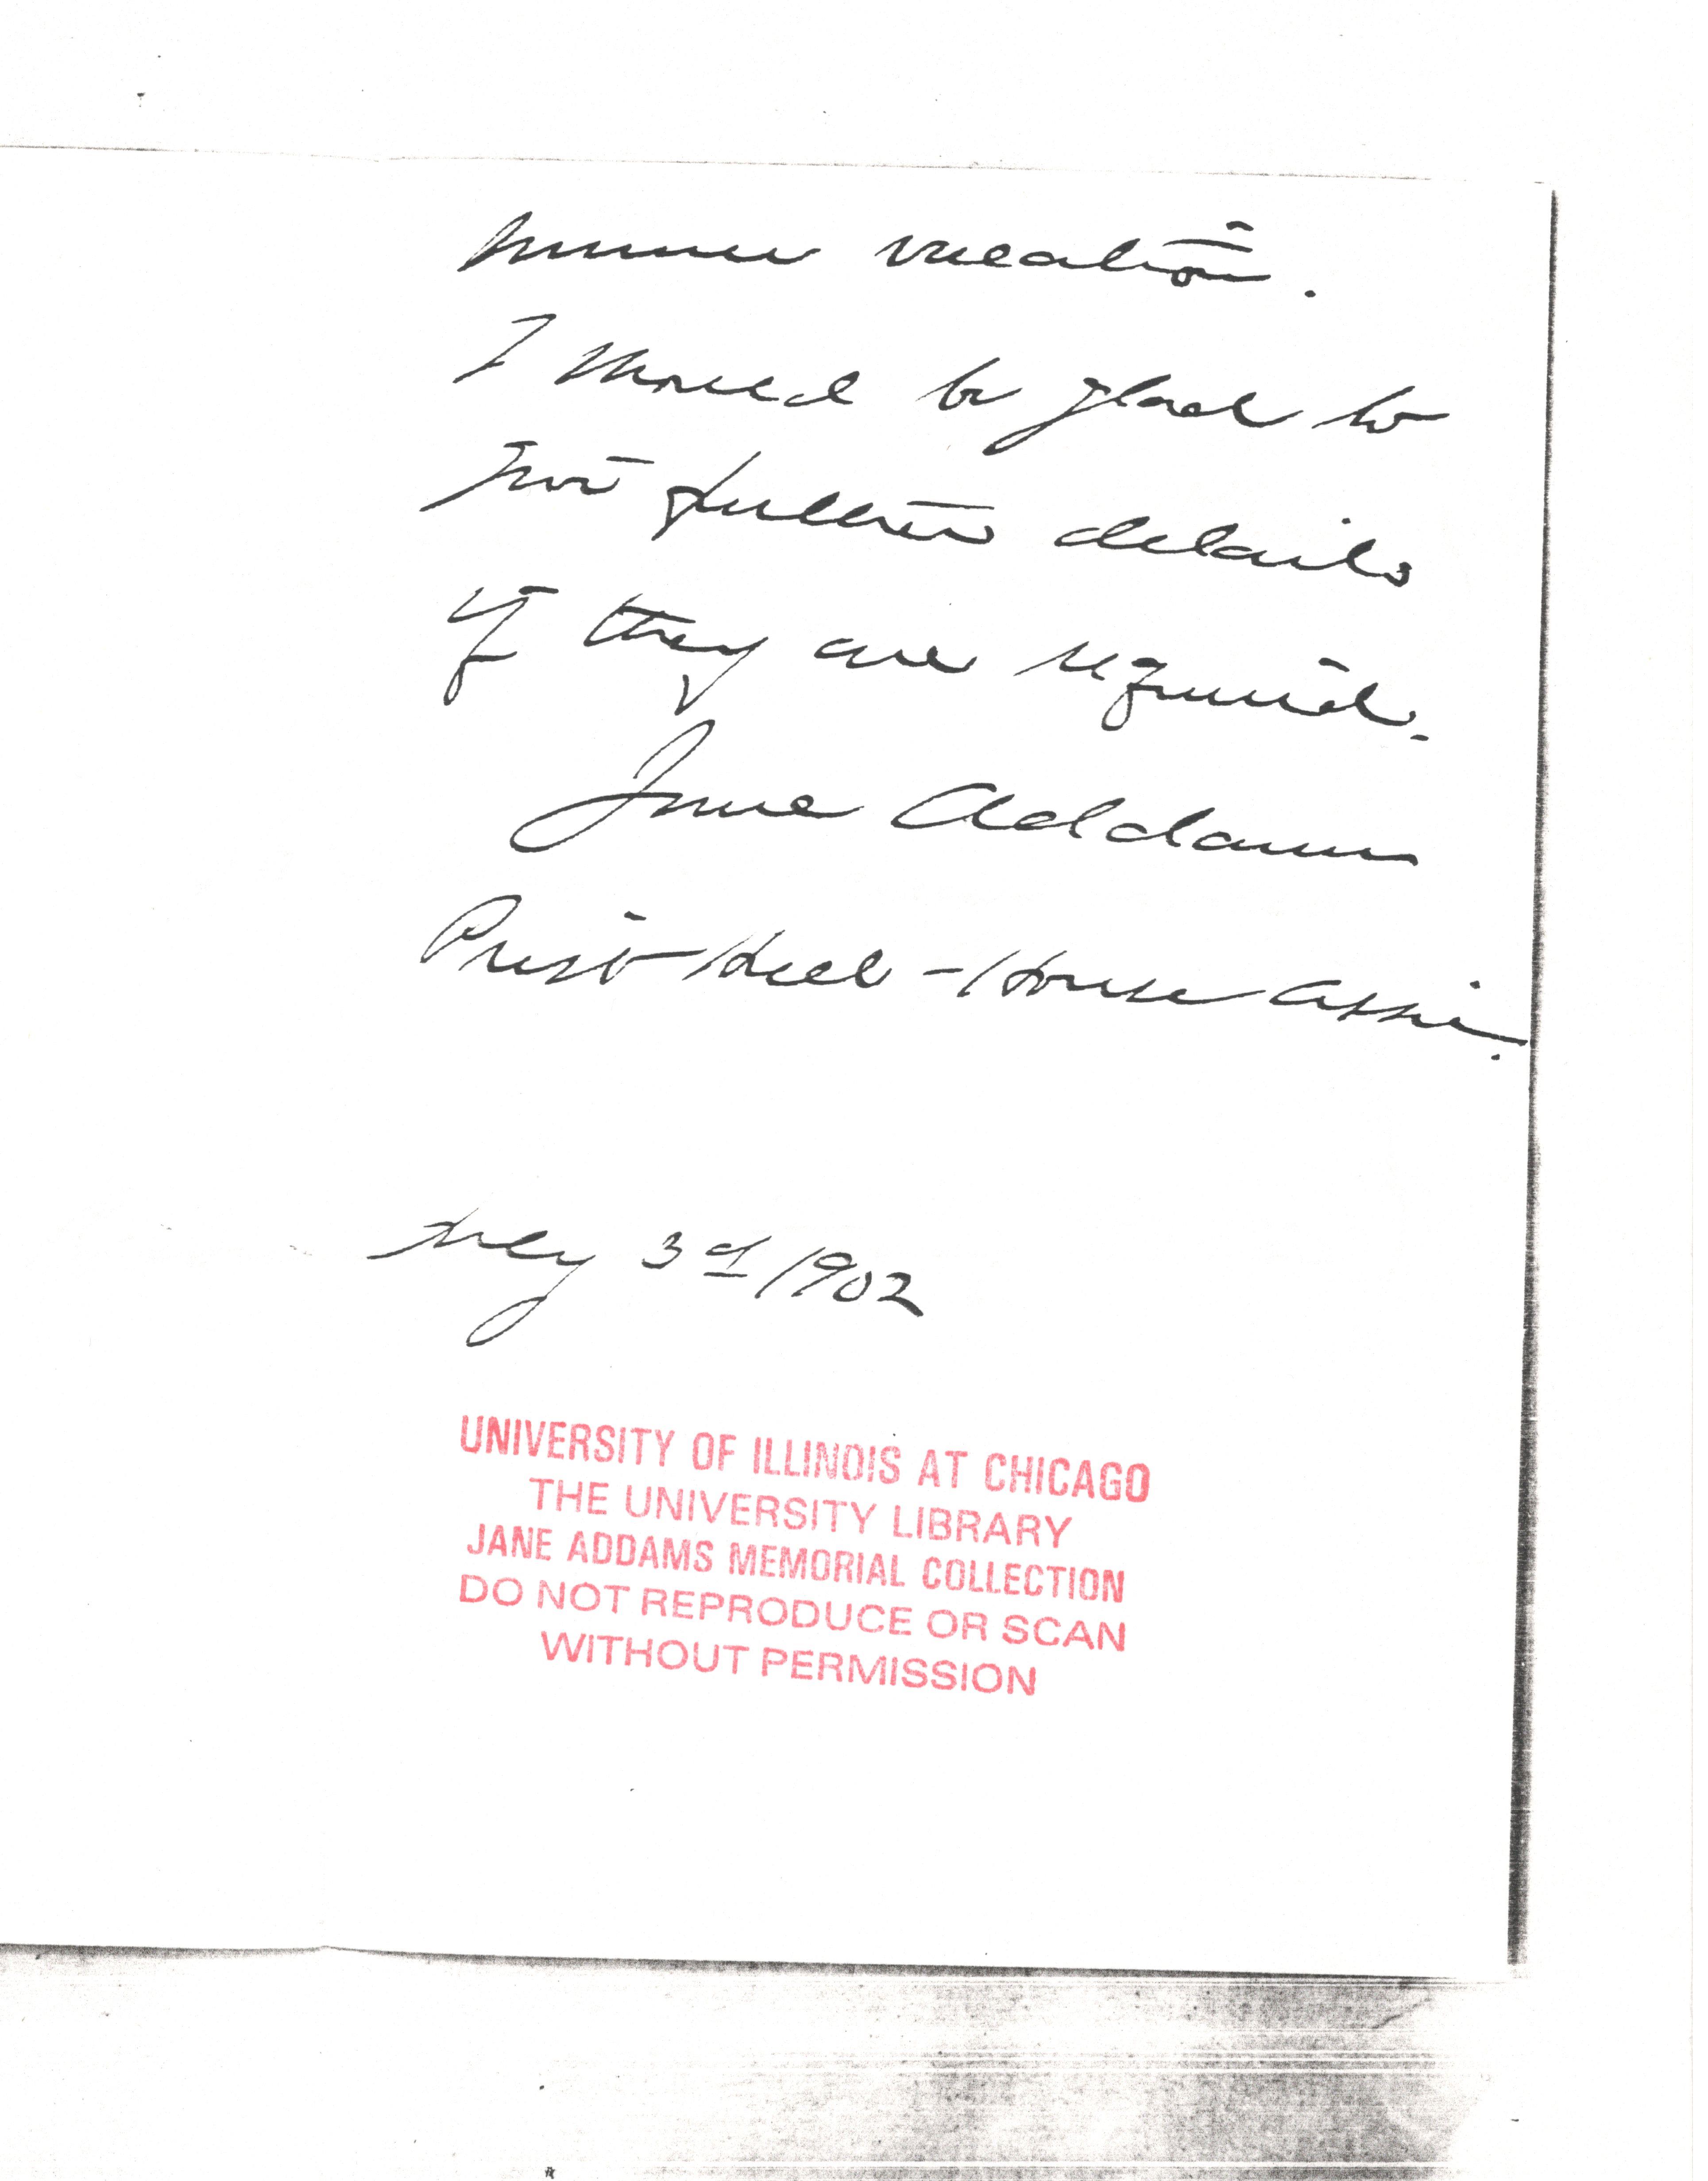 summer vacation.
I should be glad to
give further details
if they are required.
Jane Addams
Prest Hull-House Assn.
July 3d/1902
UNIVERSITY OF ILLINOIS AT CHICAGO
THE UNIVERSITY LIBRARY
JANE ADDAMS MEMORIAL COLLECTION
DO NOT REPRODUCE OR SCAN
WITHOUT PERMISSION